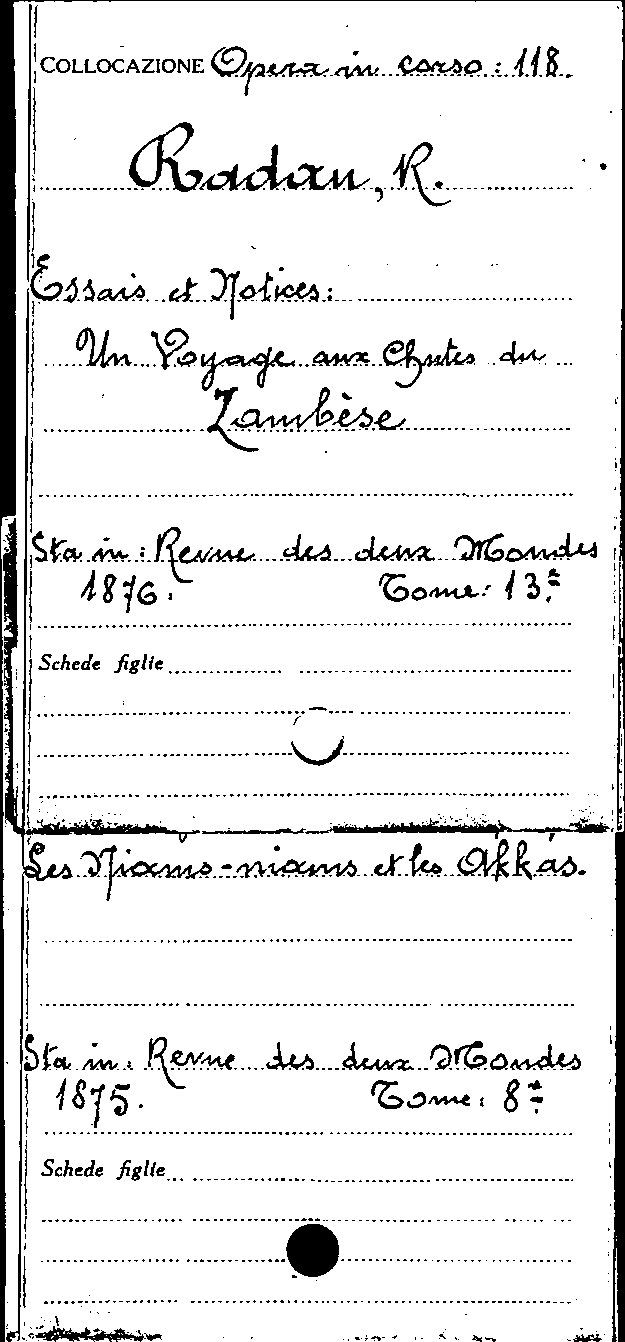 COLLOCAZIONE Opera in corso: 118.
Radau, R.
Essais et Notices:
Un Voyage aux Chutes du
Zambèse
Sta in: Revue des deux Mondes
1876. Tome: 13.e
Schede figlie
Les Niams-niams et les Akkas.
Sta in: Revue des deux Mondes
1875. Tome: 8.e
Schede figlie